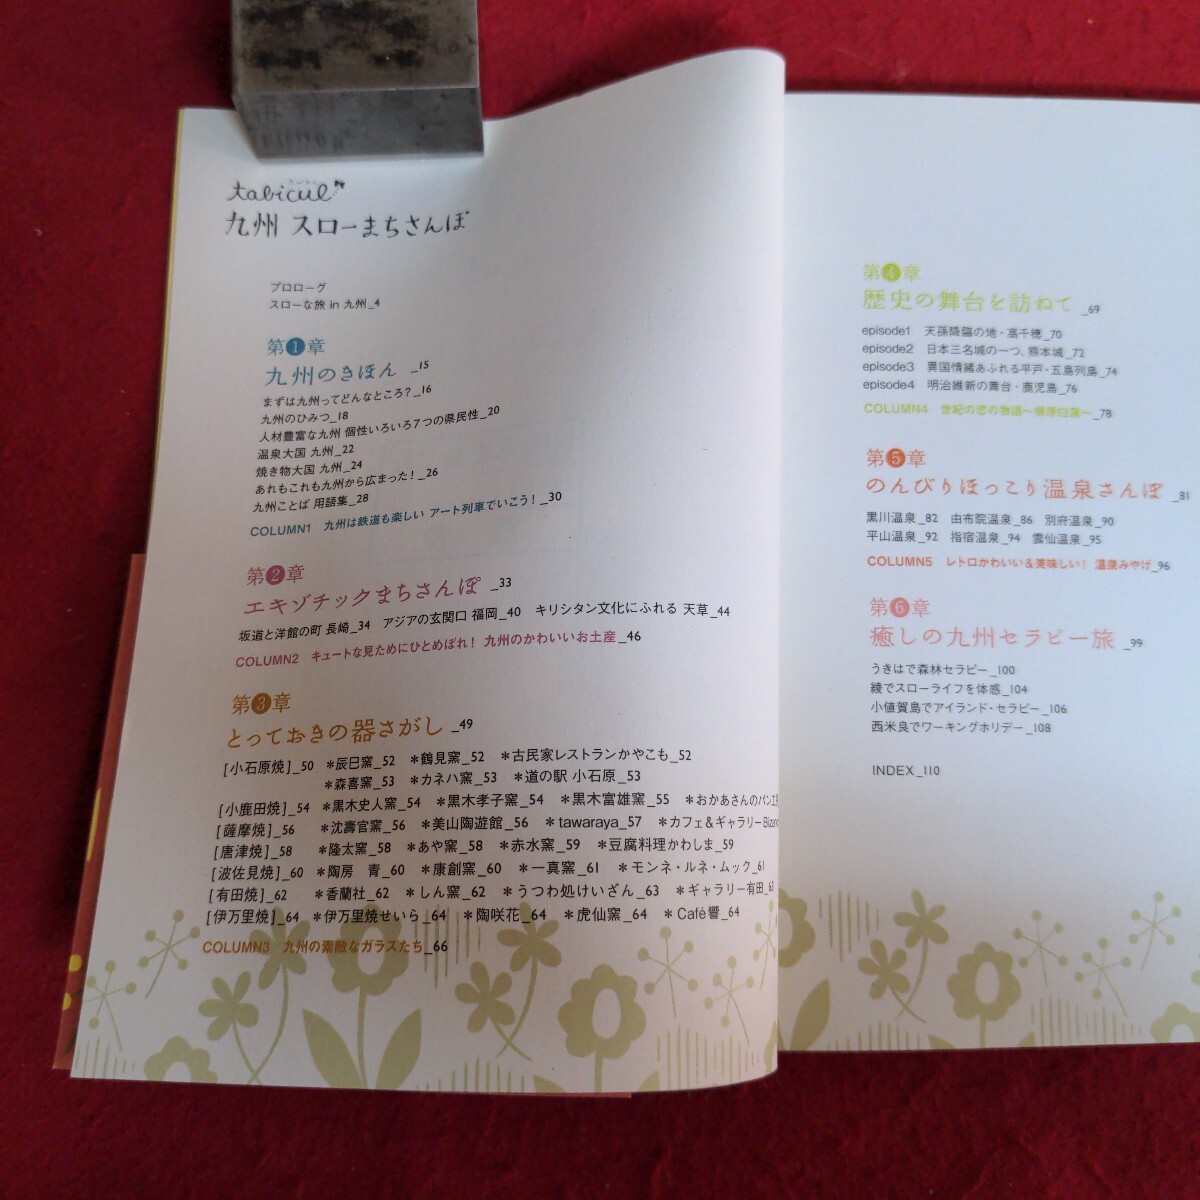 tabicul
九州 スローまちさんぽ
プロローグ
スローな旅 in 九州_4
第1章
九州のきほん _15
まずは九州ってどんなところ?_16
九州のひみつ_18
人材豊富な九州 個性いろいろ7つの県民性_20
温泉大国 九州_22
焼き物大国 九州_24
あれもこれも九州から広まった!_26
九州ことば 用語集_28
COLUMN1 九州は鉄道も楽しい アート列車でいこう!_30
第2章
エキゾチックまちさんぽ _33
坂道と洋館の町 長崎_34 アジアの玄関口 福岡_40 キリシタン文化にふれる 天草_44
COLUMN2 キュートな見ためにひとめぼれ! 九州のかわいいお土産_46
第3章
とっておきの器さがし _49
[小石原焼]_50 *辰巳窯_52 *鶴見窯_52 *古民家レストランかやこも_52
*森喜窯_53 *カネハ窯_53 *道の駅 小石原_53
[小鹿田焼]_54 *黒木史人窯_54 *黒木孝子窯_54 *黒木富雄窯_55 *おかあさんのパン工
[薩摩焼]_56 *沈壽官窯_56 *美山陶遊館_56 *tawaraya_57 *カフェ&ギャラリーBizan
[唐津焼]_58 *隆太窯_58 *あや窯_58 *赤水窯_59 *豆腐料理かわしま_59
[波佐見焼]_60 *陶房 青_60 *康創窯_60 *一真窯_61 *モンネ・ルネ・ムック_61
[有田焼]_62 *香蘭社_62 *しん窯_62 *うつわ処けいざん_63 *ギャラリー有田_63
[伊万里焼]_64 *伊万里焼せいら_64 *陶咲花_64 *虎仙窯_64 *Café響_64
COLUMN3 九州の素敵なガラスたち_66
第4章
歴史の舞台を訪ねて _69
episode1 天孫降臨の地・高千穂_70
episode2 日本三名城の一つ、熊本城_72
episode3 異国情緒あふれる平戸・五島列島_74
episode4 明治維新の舞台・鹿児島_76
COLUMN4 世紀の恋の物語〜柳原白蓮〜_78
第5章
のんびりほっこり温泉さんぽ _81
黒川温泉_82 由布院温泉_86 別府温泉_90
平山温泉_92 指宿温泉_94 雲仙温泉_95
COLUMN5 レトロかわいい&美味しい! 温泉みやげ_96
第6章
癒しの九州セラピー旅 _99
うきはで森林セラピー_100
綾でスローライフを体感_104
小値賀島でアイランド・セラピー_106
西米良でワーキングホリデー_108
INDEX_110